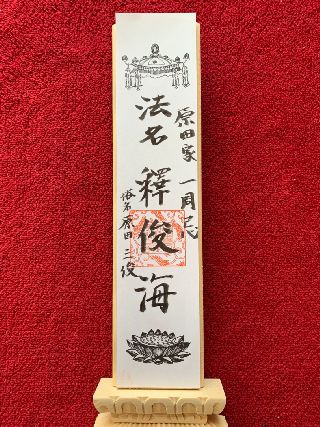 原田家 一周忌
法名 釋俊海
俗名 原田 三俊